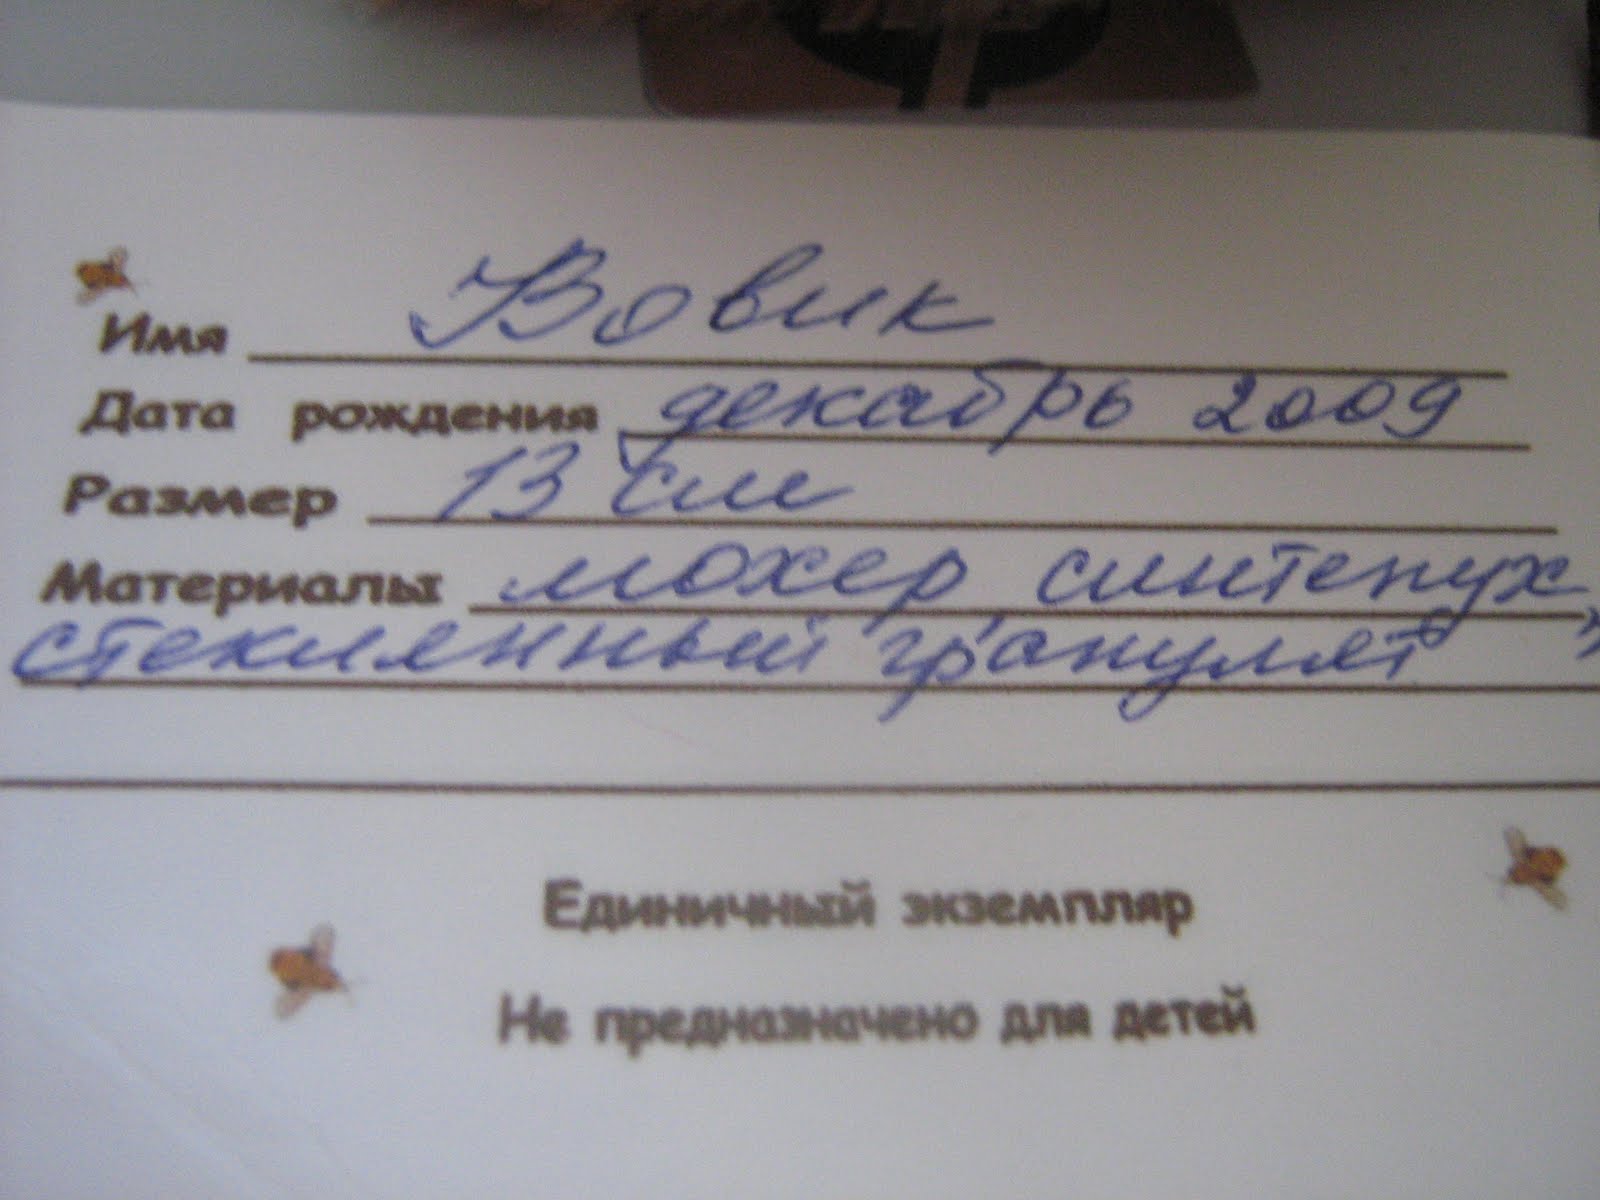 Имя Вовик
Дата рождения декабрь 2009
Размер 13 см
Материалы мохер, синтепух,
стеклянный гранулят
Единичный экземпляр
Не предназначено для детей